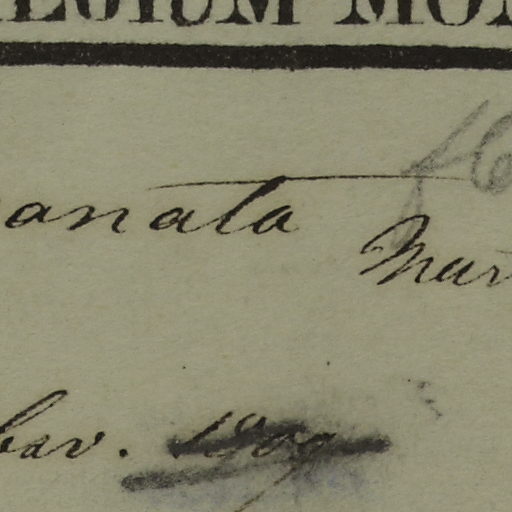 LEGIUM MON
anata
Mar
bav. 1809